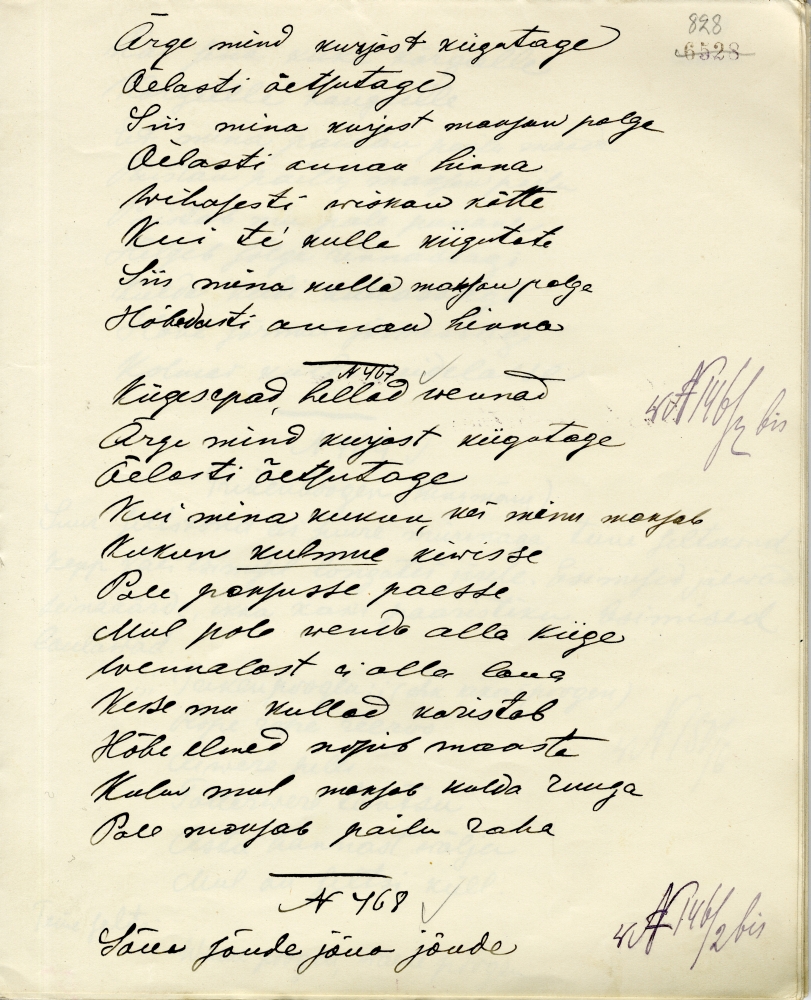 828
6528
Ärge mind kurjast kiigutage
Õelasti õetsutage
Siis mina kurjast maksan palge
Õelasti annan hinna
Wihasesti wiskan kätte
Kui te kulla kiigutate
Siis mina kulla maksan palge
Hõbedasti annan hinna
N 467
Kiigesepad, hellad wennad
Ärge mind kurjast kiigutage
Õelasti õetsutage
Kui mina kukun, kes minu maksab
Kukun kulmune kiwisse
Pale paksusse paesse
Mul pole wenda alla kiige
Wennalast ei alla laua
Kesse mu kullad koristab
Hõbe elmed nopib maasta
Kulu mul maksab kulda ruuga
Pale maksab pailu raha
N 468
Sõua jõude jõua jõude
N 146/2 bis
N 146/2 bis